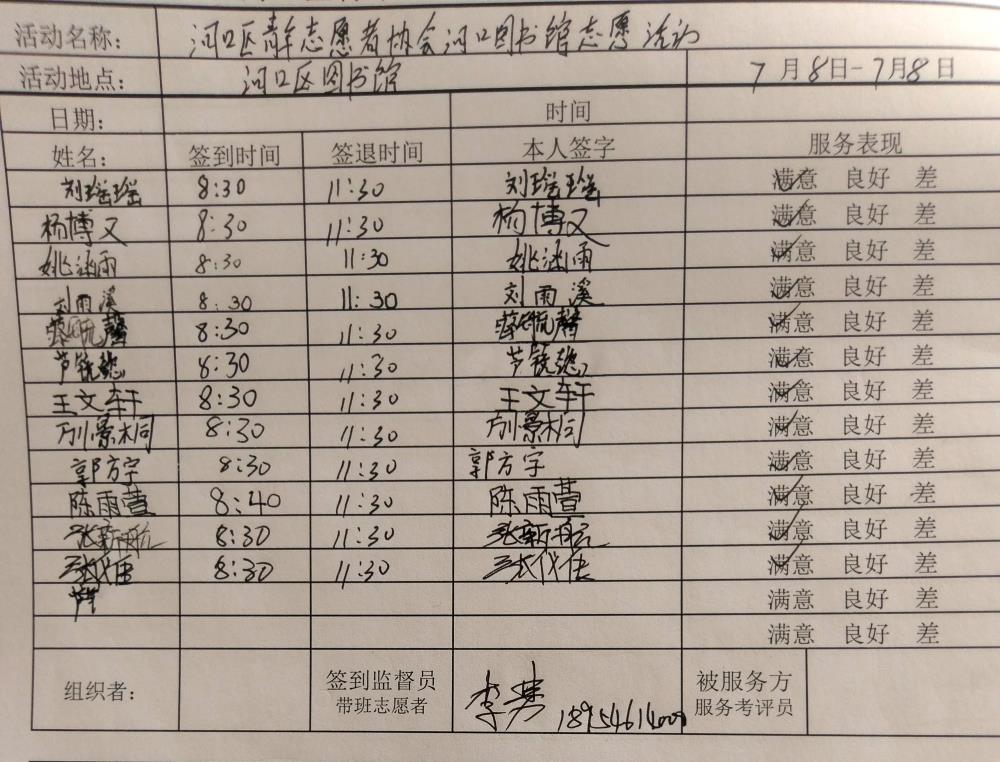 活动名称： 河口区青年志愿者协会河口图书馆志愿活动
活动地点： 河口区图书馆 7月8日-7月8日
日期： 时间
姓名： 签到时间 签退时间 本人签字 服务表现
刘瑶瑶 8:30 11:30 刘瑶瑶 满意 良好 差
杨博文 8:30 11:30 杨博文 满意 良好 差
姚涵雨 8:30 11:30 姚涵雨 满意 良好 差
刘雨溪 8:30 11:30 刘雨溪 满意 良好 差
8:30 11:30 满意 良好 差
8:30 11:30 满意 良好 差
王文轩 8:30 11:30 王文轩 满意 良好 差
8:30 11:30 满意 良好 差
郭方宇 8:30 11:30 郭方宇 满意 良好 差
陈雨萱 8:40 11:30 陈雨萱 满意 良好 差
张新航 8:30 11:30 张新航 满意 良好 差
8:30 11:30 满意 良好 差
满意 良好 差
满意 良好 差
组织者： 签到监督员 被服务方
带班志愿者 李梦 服务考评员